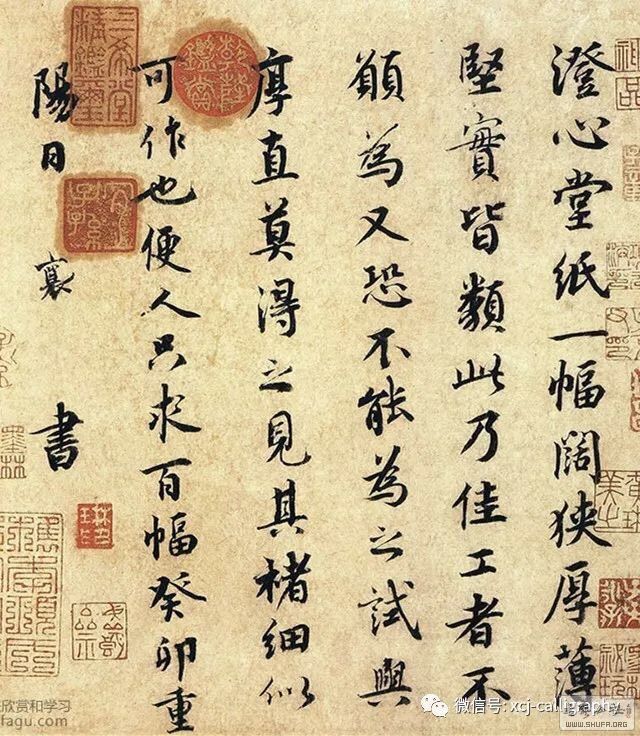 澄心堂紙一幅闊狹厚薄
堅實皆類此乃佳工者不
願為又恐不能為之試與
厚直莫得之見其楮細似
可作也便人只求百幅癸卯重
陽日 襄 書
三希堂精鑑璽
宜子孫
墨林
微信号: xcj-calligraphy
欣赏和学习
fagu.com
WWW.SHUFA.ORG